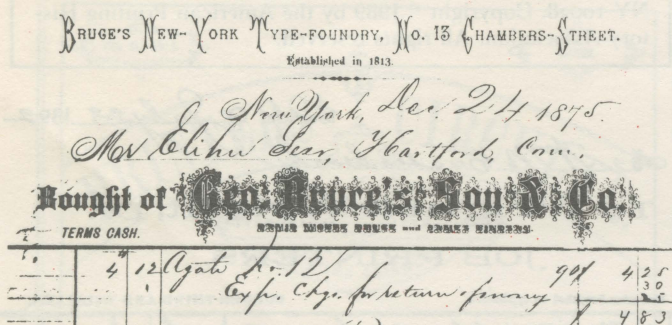 BRUCE'S NEW-YORK TYPE-FOUNDRY, NO. 13 CHAMBERS-STREET.
Established in 1813.
New York, Dec. 24 1875
Mr Elihu Geer, Hartford, Conn.
Bought of Geo. Bruce's Son & Co.
TERMS CASH. DAVID WOLFE BRUCE and JAMES LINDSAY.
4 12 Agate No. 12 90¢ 4 25
Exp. Chgs. for return of money 30
25
4 83